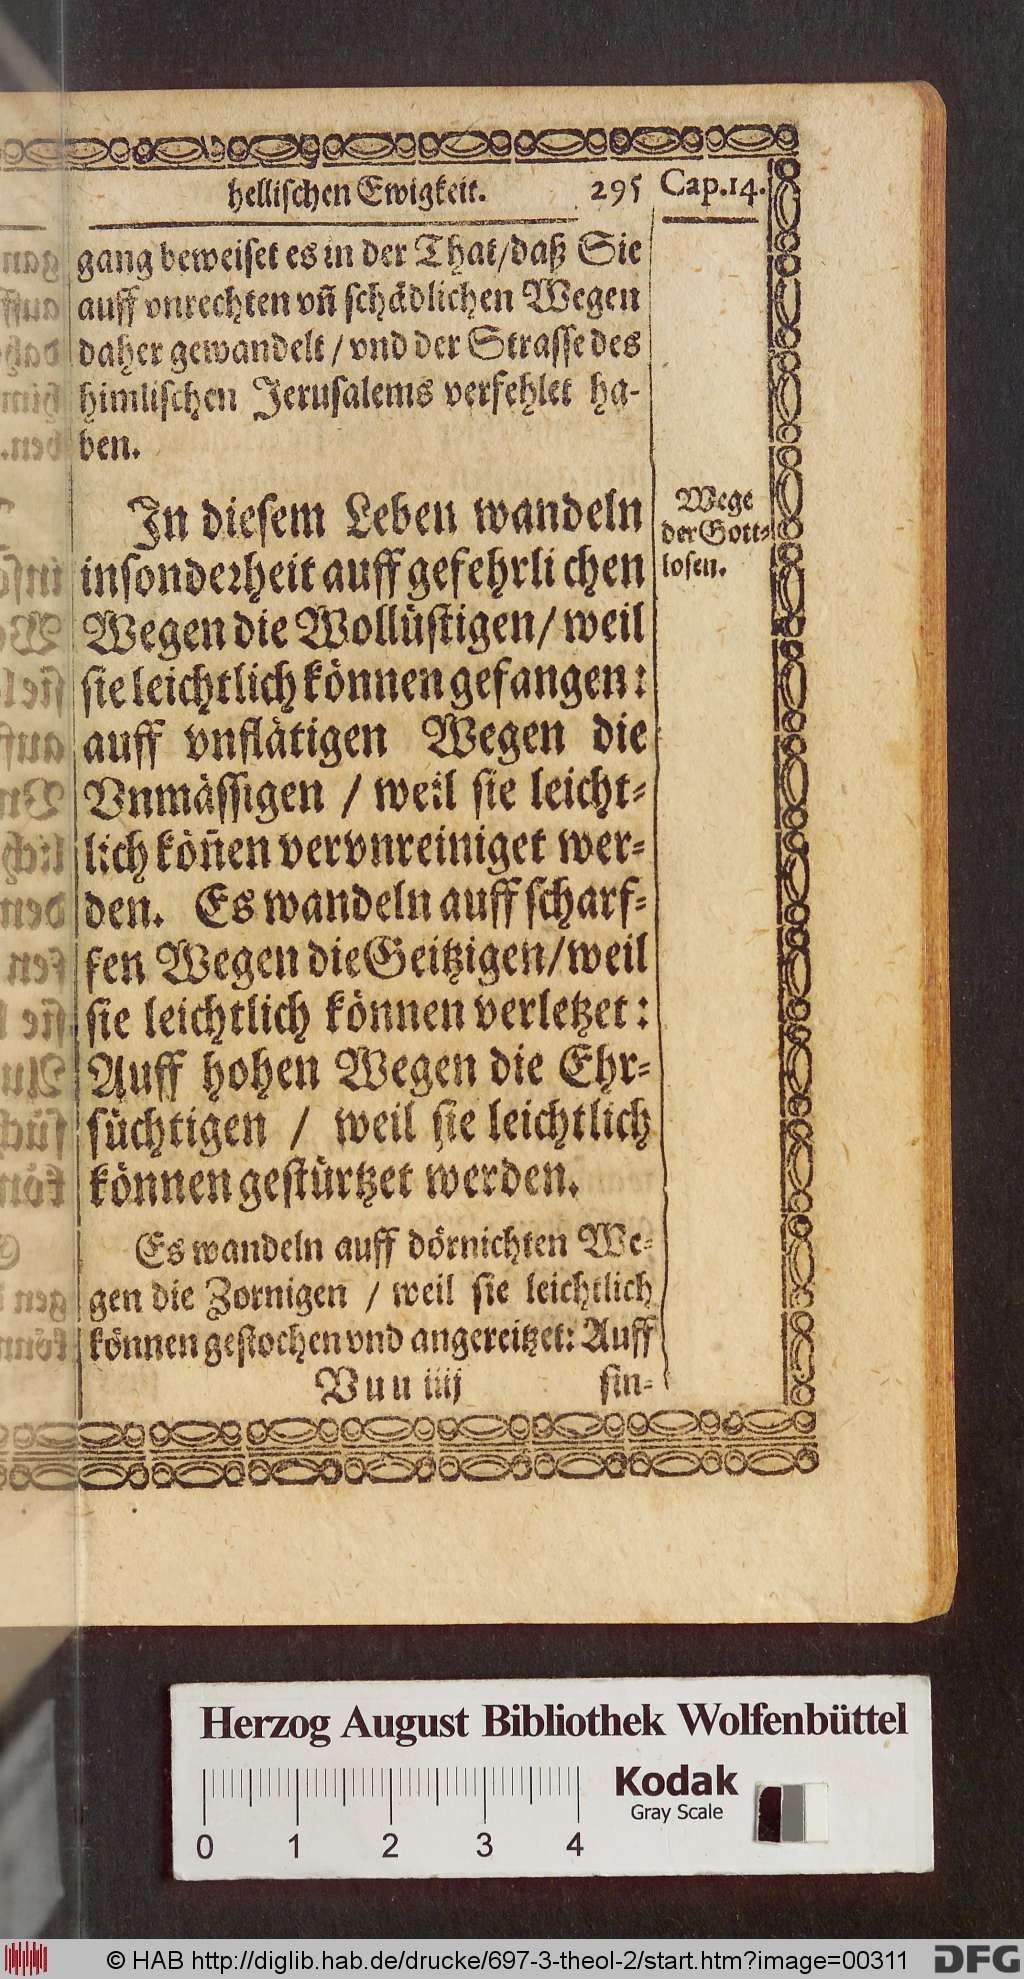 hellischen Ewigkeit. 295 Cap.14.
gang beweiset es in der That/daß Sie
auff vnrechten vñ schädlichen Wegen
daher gewandelt / vnd der Strasse des
himlischen Jerusalems verfehlet ha-
ben.
In diesem Leben wandeln
insonderheit auff gefehrlichen
Wegen die Wollüstigen/ weil
sie leichtlich können gefangen:
auff vnflätigen Wegen die
Vnmässigen / weil sie leicht-
lich köñen vervnreiniget wer-
den. Es wandeln auff scharf-
fen Wegen die Geitzigen/weil
sie leichtlich können verletzet:
Auff hohen Wegen die Ehr-
süchtigen / weil sie leichtlich
können gestürtzet werden.
Es wandeln auff dörnichten We-
gen die Zornigen / weil sie leichtlich
können gestochen vnd angereitzet: Auff
Vuu iiij sin-
Wege
der Gott-
losen.
Herzog August Bibliothek Wolfenbüttel
Kodak
Gray Scale
0 1 2 3 4
© HAB http://diglib.hab.de/drucke/697-3-theol-2/start.htm?image=00311
DFG